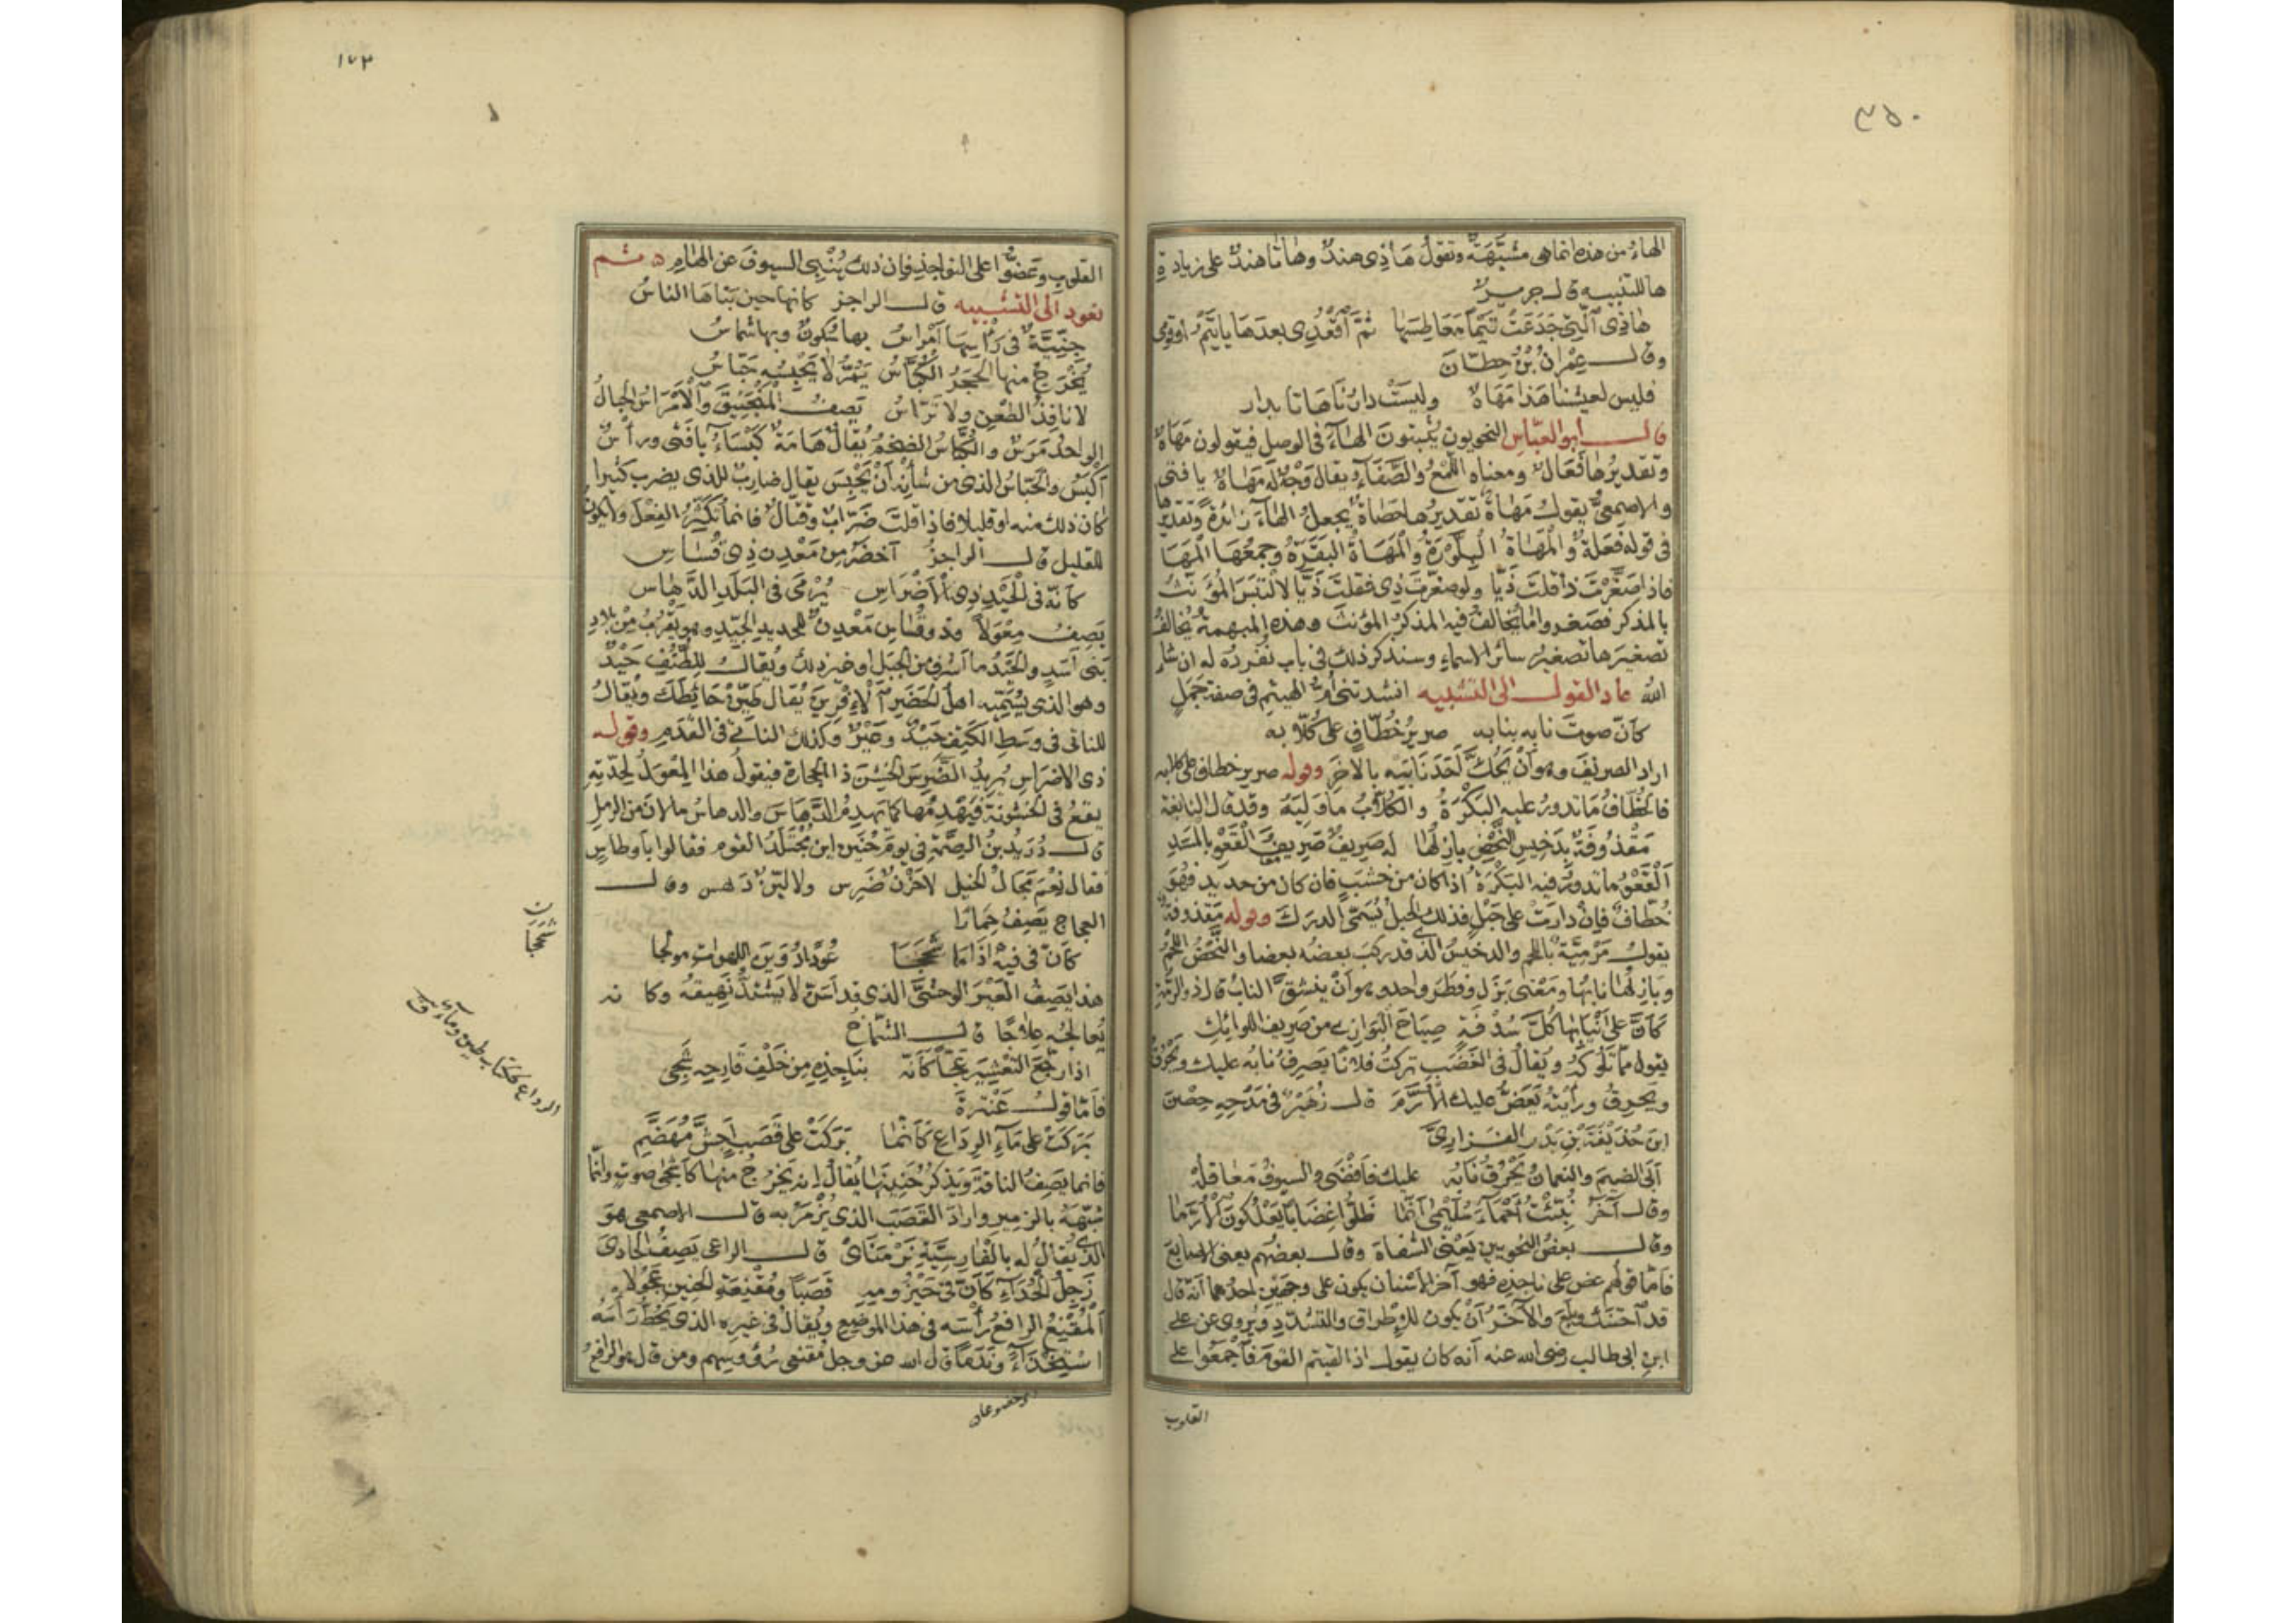 ٣٥٠
الهاء من هذه انما هى مشبَّهة وتقول هَاذِى هندٌ وهاتا هندٌ على زيادة
ها للتنبيه قال جرير
هاذى الّتِى جَدَعَتْ تَيمًا مَعَاطِسَها ثمّ اقْعُدِى بعدَها يا تَيْمُ اوقومى
وقال عِمْرانُ بْنُ حِطّانَ
فليس لعيشنا هذا مَهَاهٌ وليسَتْ دارُنا هَاتا بدار
قال ابو العبّاس النحويون يُثبتونَ الهاءَ فى الوصل فيقولون مَهَاهٌ
وتقديرُها فَعَالٌ ومعناه اللَّمْعُ والصَّفَاءُ ويقال وَجْهٌ لَه مَهَاهٌ يا فتى
والاصمعىُّ يقول مَهاةٌ تقديرُها حَصَاةٌ يجعل الهاءَ زائدةً وتقديرها
فى قوله فَعَلَةٌ والْمَهاةُ البِلَّوْرَةُ والْمَهَاةُ البَقَرَةُ وجمعُهَا الْمَهَا
فاذا صَغَّرْتَ ذا قلتَ ذَيّا ولو صغّرتَ ذِى فقلتَ ذَيّا لالتبَسَ المُؤَنّثُ
بالمذكر فصَغروا ما يُخالفُ فيه المذكرُ المؤنثَ وهذه المبهمةُ يُخالفُ
تصغيرَها تصغيرُ سائر الاسماءِ وسنذكر ذلك فى باب نُفْرِدُه له ان شاء
الله عاد القول الى التشبيه انشدتنى أمُّ الهيثم فى صفة جَمَلٍ
كأنّ صوتَ نابِه بنابِه صريرُ خُطّافٍ على كُلّابِه
اراد الصريفَ وهو أنْ يَحُكَّ أحَدَ نَابَيْه بالآخَرِ وقوله صرير خطاف على كلابه
فالخُطّافُ ما تدور عليه البَكْرَةُ والكُلّابُ ما وَلِيَهُ وقد قال النابغة
مَقْذُوفَةٍ بدَخِيسِ النَّحْضِ بازِلُها له صَرِيفٌ صَرِيفَ القَعْوِ بالمَسَدِ
اَلْقَعْوُ ما تدور فيه البَكْرَةُ اذا كان من خشَب فان كان من حديد فهُوَ
خُطّافٌ فإنْ دارَتْ على حَبْلٍ فذلك الحَبلُ يُسَمّى الدرَكَ وقوله مَقذوفة
يقول مَرْمِيّةٌ باللحم والدخيسُ الذى قد ركبَ بعضُه بعضا والنّحْضُ اللّحْمُ
وبازِلُها نابُها ومَعْنى بَزَل وفَطَرَ واحد وهو أنْ ينشقّ النابُ قال ذو الرّمّة
كَأنّ على أنْيابِها كُلَّ سُدْفَةٍ صِيَاحَ البَوازِى من صَرِيفِ اللوائِك
يقول ممّا تَلُوكهُ ويُقالُ فى الغَضَب تركتُ فلانًا يَصرِفُ نابُه عليك ويَحْرُقُ
ويَحرِقُ ورأيتُه يَعَضُّ عليك الأُرَّمَ قال زُهَيْرٌ فى مَدْحِه حِصْنَ
ابنَ حُذَيْفَةَ بْنِ بَدْر الفَزارىّ
اَبَى الضيمَ والنعمانُ يَحْرُقُ نابُه عليك فأفْضَى والسيوفُ مَعاقلُهْ
وقال آخَرُ نُبِّئْتُ أحْمَاءَ سُلَيْمى أنّما ظَلّوا غِضَابًا يَعْلُكُونَ الأُرَّمَا
وقال بعضُ النحويين يَعْنى الشفاهَ وقال بعضُهم يعنى الاصابعَ
فأمّا قولُهم عض على ناجذِه فهو آخرُ الأسْنان يكون على وجهين احدُهما أنّه قال
قد احتنَكَ وبلغَ والآخَرُ أنْ يكون للإطْراق والتشدّدِ ويُروى عن على
ابن ابى طالب رضى الله عنه أنه كان يقول اذا لقيتم القومَ فاجْمَعُوا على
القلوب
١٧٣
القلوب وعَضُّوا على النواجذِ فان ذلك يُنْبِى السيوفَ عن الهام ه ثم
نعود الى التشبيه قال الراجز كانها حين بَناها الناسُ
جِنِّيَّةٌ فى رَأسِهَا أمْراسُ بها سُكونٌ وبها شماسُ
يَخْرُجُ منها الحَجَرُ الكُبّاسُ يَمُرُّ لا يَحْبِسُه حَبّاسُ
لا نافِذُ الطعْنِ ولا تَرّاسُ يَصِفُ الْمَنْجَنِيقَ والأمْرَاسُ الحِبالُ
الواحدُ مَرَسٌ والكُبّاسُ الضخمُ يُقالُ هَامَةٌ كَبْسَاءُ يا فَتى ورأسٌ
أكْبَسُ والحَبّاسُ الذى من شأنِه أنْ يَحْبِسَ يقال ضاربٌ للذى يضرب كثيرا
كان ذلك منه او قليلا فاذا قلتَ ضَرّابٌ وقتّالٌ فانما تُكَثِّرُ الفِعْلَ ولا يكون
للقليل قال الراجزُ أخضَرُ مِن مَعْدِنِ ذِى قُسَاسِ
كأنّه فى الحَيْدِ ذِى الأضْرَاسِ يُرْمَى فى البَلَدِ الدَّهاسِ
يَصِفُ مِعْوَلًا وذو قُسَاس مَعْدِنٌ للحديد الجَيِّدِ وهو يَقْرُبُ مِنْ بلادِ
بنى أسَدٍ والحَيْدُ ما أشرف من الجبَل او غير ذلك ويُقالُ لِلطُّنُفِ حَيْدٌ
وهو الذى يُسَمِّيه اهلُ الحَضَرِ الإفْرِيزَ يُقال طَنِّفْ حَائِطَك ويُقالُ
للناتى فى وسَطِ الكَتِفِ حَيْدٌ وعَيْرٌ وكذلك الناتئُ فى القَدَم وقوله
ذى الاضراس يُريدُ الضَّرِسَ الخَشِنَ ذا الحِجارة فيقولُ هذا المِعْوَلُ لِحِدّتِه
يقعُ فى الخشُونة فيَهْدِمُها كما يَهدِمُ الدَّهاسَ والدهاسُ ما لانَ من الرملِ
قال دُرَيْدُ بنُ الصِّمّةِ فى يوم حُنَيْن اينَ مُجْتَلَدُ القوم فقالوا بأوطاسٍ
فقال نِعْمَ مَجَالُ الخيل لا حَزْنٌ ضَرِس ولا ليّنٌ دَهِس وقال
العجاج يَصِفُ حِمارًا
كأنّ فى فيه اذا ما شَحَجَا عُودًا دُوَيْنَ اللهَواتِ مولَجا
هذا يَصِفُ العَيْرَ الوحشىَّ الذى قد أسَنّ لا يَشتدُّ نَهِيقُه وكانه
يُعالجُه عِلاجًا قال الشمّاخُ
اذا رَجَّعَ التَّعْشِيرَ عَجًّا كأنّه بناجِذِه مِن خَلْفِ قَارِحِه شَجى
فأمّا قولُ عَنْتَرَةَ
بَرَكَتْ على مَاءِ الرِدَاعِ كأنّما بَرَكَتْ على قَصَبٍ أجَشَّ مُهَضَّمِ
فانما يَصِفُ الناقةَ ويَذكر حَنِينَها يُقالُ انه يَخرُجُ منها كأشْجَى صوتٍ وانّما
شبّهَهُ بالزمِيرِ وارادَ القَصَبَ الذى يُزْمَرُ به قال الاصمعى هو
الذى يُقالُ له بالفارِسيّةِ نَرْمَنَاىْ قال الراعى يَصِفُ الحادىَ
زَجِلَ الحُدَاءِ كأنّ فى حَيْزُومِهِ قَصَبًا ومُقْنِعَةَ الحنِينِ عَجُولَا
اَلْمُقْنِعُ الرافعُ رأسَه فى هذا الموضِعِ ويُقالُ فى غيره الذى يَحُطُّ رأسَهُ
اسْتِخْذَاءً ونَدَمًا قال الله عز وجل مُقنعى رُؤوسِهم ومن قال هو الرافعُ
شَحَجَا
الرداع ككتاب